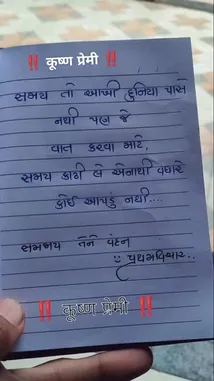 ‼️ कृष्ण प्रेमी ‼️
સમય તો આખી દુનિયા પાસે
નથી પણ જે
વાત કરવા માટે,
સમય કાઢી લે એનાથી વધારે
કોઈ આપણું નથી....
સમજાય તેને વંદન
‼️ कृष्ण प्रेमी ‼️